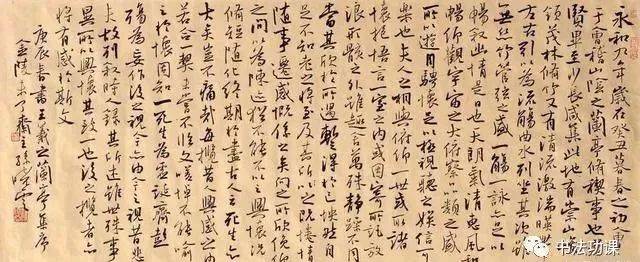 永和九年歲在癸丑暮春之初會
于會稽山陰之蘭亭脩稧事也群
賢畢至少長咸集此地有崇山峻
領茂林脩竹又有清流激湍暎帶
左右引以為流觴曲水列坐其次雖
無絲竹管弦之盛一觴一詠亦足以
暢敘幽情是日也天朗氣清惠風和
暢仰觀宇宙之大俯察品類之盛
所以遊目騁懷足以極視聽之娛信可
樂也夫人之相與俯仰一世或取諸
懷抱悟言一室之內或因寄所託放
浪形骸之外雖趣舍萬殊靜躁不同
當其欣於所遇暫得於己怏然自
足不知老之將至及其所之既惓情
隨事遷感慨係之矣向之所欣俛仰
之間以為陳迹猶不能不以之興懷況
脩短隨化終期於盡古人云死生亦
大矣豈不痛哉每攬昔人興感之由
若合一契未嘗不臨文嗟悼不能喻
之於懷固知一死生為虛誕齊彭
殤為妄作後之視今亦由今之視昔悲
夫故列敘時人錄其所述雖世殊事
異所以興懷其致一也後之攬者亦
將有感於斯文
庚辰春書王羲之蘭亭集序
金陵未了齋主孫曉雲
书法功课